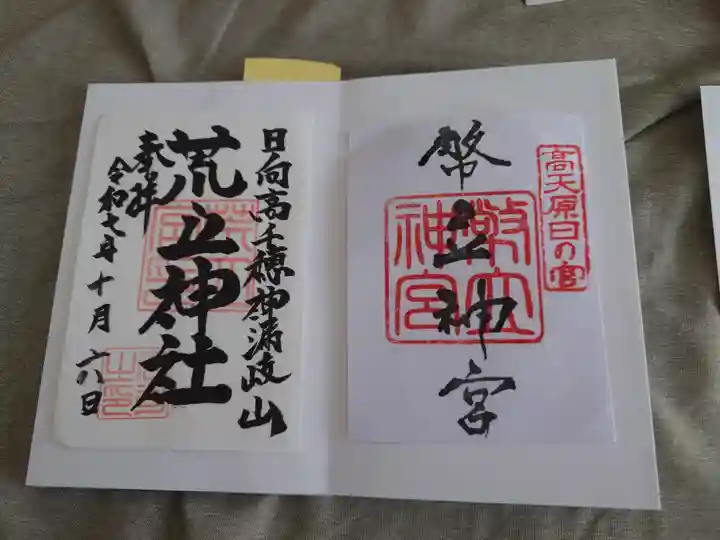 高天原日の宮
幣立神宮
幣立神宮
日向高千穂神漏岐山
荒立神社
奉拝
令和七年十月 八日